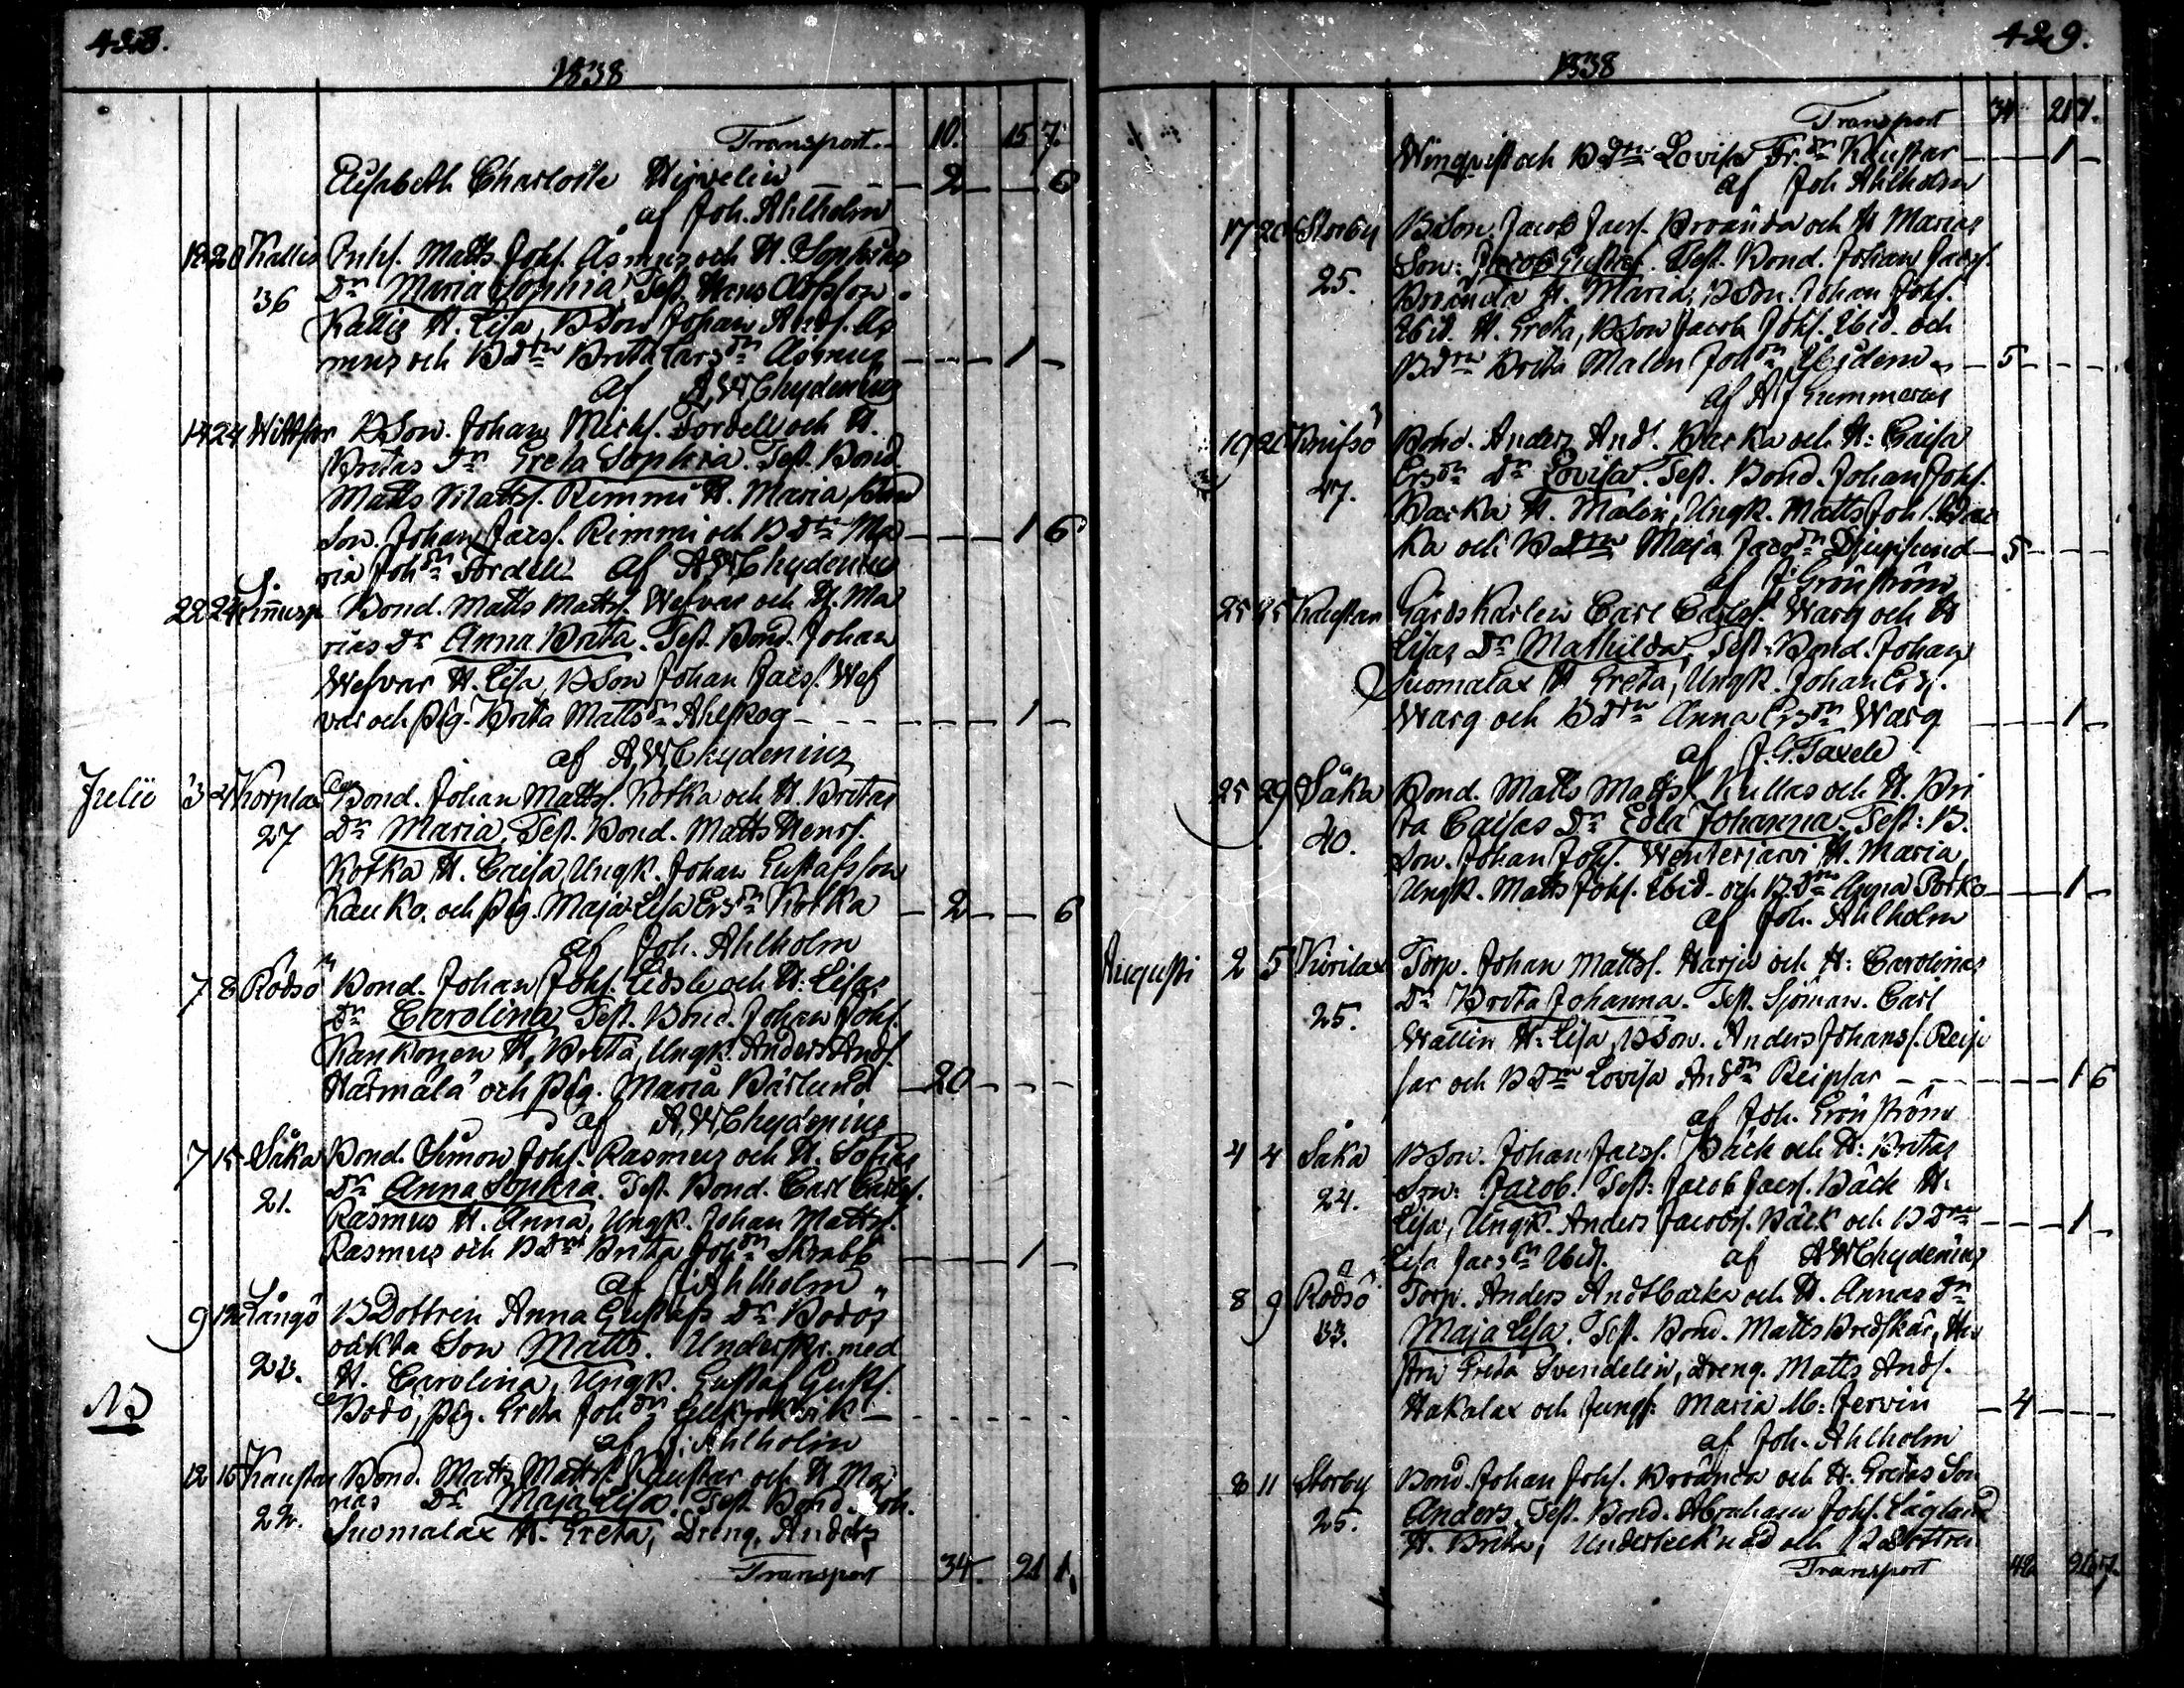 428.
1838
Transport 10. 15 7.
Elisabeth Charlotte 2 6
af Joh. Ahlholm
18 20 Kallis Inhs. Matts Johs. Asmus och H. Sophias
36 Dr Maria Sophia, Test. Hans
Kallis H. Lisa, BSon Johan Ands. As
mus och BDtn Brita Carsdn Asmus 1
af A,W,Chydenius
24 Wittsar BSon. Johan Michs. Tordell och H.
Britas Dr Greta Sophia. Test. Bond.
Matts Matts. Rimmi H. Maria, Bond
Son. Johan Jacs. Rimmi och BDtn Ma 1 6
ria Johdn Tordell af A,W,Chydenius
22 24 Bond. Matts Matts. Wefvar och H. Ma
rias Dr Anna Brita. Test. Bond. Johan
Wefvar H. Lisa, BSon Johan Jacs. Wef
var och pig. Brita Mattsdn Ahlskog 1
af A,W,Chydenius
Julii 3 4 Korplax Bond. Johan Matts. Kotka och H. Britas
27 Dr Maria, Test. Bond. Matts Henrs.
Kotka H. Caisa, Ungk. Johan Gustafsson
Kauko. och pig. Maja Lisa Ersdn Kotka 2 6
af Joh. Ahlholm
7 8 Rödsö Bond. Johan Johs. och H: Lisas
Dr Carolina, Test. Bond. Johan Johs.
Kankonen H, Brita, Ungk. Anders Ands.
Härmälä och pig. Maria Bärlund 20
af A,W,Chydenius
7 15 Såka Bond. Simon Johs. Rasmus och H. Sofias
21. Dr Anna Sophia. Test. Bond. Carl Carls.
Rasmus H. Anna, Ungk. Johan Matts.
Rasmus och BDtn Brita Johdn Skrabb 1
af J: Ahlholm
9 12 Långö BDottren Anna Gustafs Dr Bodös
23. oäkta Son Matts. Understr. med
H. Carolina, Ungk. Gustaf Gusts.
NB Bodö, pig. Greta Johdr
af J: Ahlholm
12 15 Kaustar Bond. Matts Matts. Kaustar och H Ma
22. rias Dr Maja Lisa. Test. Bond. Joh.
Suomalax H. Greta, Dreng, Anders
Transport 34. 21 1.
429.
1838
Transport 34 21 1.
Winqvist och BDtn Lovisa Fr.dn Kaustar 1
af Joh Ahlholm
17 20 Storby BSon. Jacob Jacs. Broända och H Marias
25. Son: Jacob Gustaf. Test. Bond. Johan Jacs.
Broända H. Maria, BSon. Johan Johs.
Ibid. H. Greta, BSon Jacob Johs. Ibid. och
BDtn Brita Malen Johdn Ibidem 5
af A J Gummerus
19 21 Knifsö Bond. Anders Ands. Backa och H: Caisa
47. Ersdn Dr Lovisa. Test. Bond. Johan Johs.
Backa H. Malin, Ungk. Matts Johs. Bac
ka och BDtn Maja Jacobdn Djupsund 5
af J: Grönström
25 25 Kaustar Gårdskarlen Carl Carls. Warg och H
Lisas Dr Mathilda, Test. Bond. Johan
Suomalax H Greta, Ungk. Johan Ers.
Warg och BDtn Anna Ersdn Warg 1
af J. G. Taxell
25 29 Såka Bond. Matts Matts. Kullas och H. Bri
40. ta Caisas Dr Edla Johanna. Test: B.
Son. Johan Johs. Wenterjärvi H. Maria,
Ungk. Matts Johs. Ibid. och B.Dtn Anna Porko 1
af Joh. Ahlholm
Augusti 2 5 Kirilax Torp. Johan Matts. Harju och H: Carolinas
25. Dr Brita Johanna. Test. Sjöman. Carl
Wallin H: Lisa, BSon. Anders Johans. Reip
sar och BDtn Lovisa Anddn Reipsar 1 6
af Joh. Grönström
4 4 Såka BSon. Johan Jacs. Bäck och H: Britas
24. Son: Jacob. Test: Jacob Jacs. Bäck H.
Lisa, Ungk. Anders Jacobs. Bäck och BDtn 1
Lisa Jacsdn Ibid. af A W Chydenius
8 9 Rödsö Torp. Anders Ands Backa och H. Annas Dr
33. Maja Lisa. Test. Bond. Matts Bredskär, Hu
stru Greta Svendelin, Dreng. Matts Ands.
Hakalax och Jungf: Maria M: Jervin 4
af Joh. Ahlholm
8 11 Storby Bond. Johan Johs. Broända och H: Gretas Son
25. Anders. Test. Bond. Abraham Johs. Lågland
H. Brita, Undertecknad och BDottren
Transport 48 26 7.